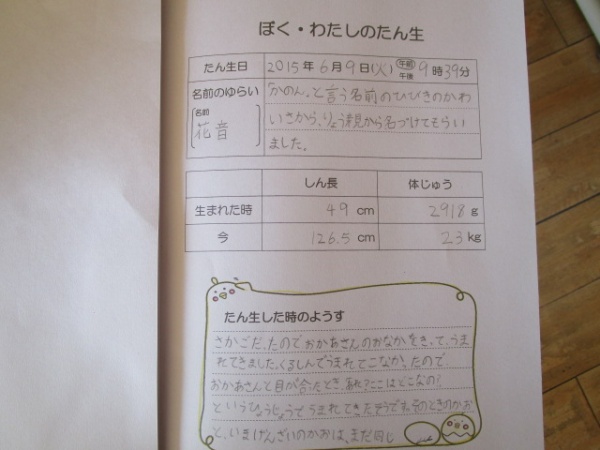 ぼく・わたしのたん生
たん生日 2015年6月9日(火) 午前 午後 9時39分
名前のゆらい
名前
花音
「かのん」と言う名前のひびきのかわ
いさから、りょう親から名づけてもらい
ました。
しん長 体じゅう
生まれた時 49 cm 2918 g
今 126.5 cm 23 kg
たん生した時のようす
さかごだったのでおかあさんのおなかをきって、うま
れてきました。くるしんでうまれてこなかったので
おかあさんと目が合ったとき、あれ?ここはどこなの?
というひょうじょうでうまれてきたそうです。そのときのかお
と、いまげんざいのかおは、まだ同じ